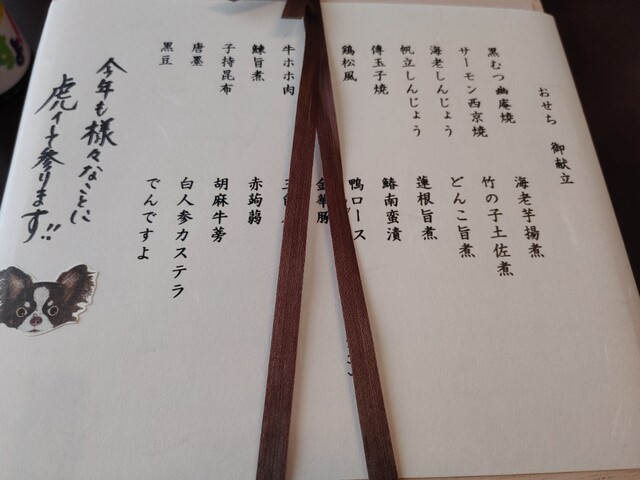 おせち 御献立
黒むつ幽庵焼
サーモン西京焼
海老しんじょう
帆立しんじょう
傳玉子焼
鶏松風
牛ホホ肉
鰊旨煮
子持昆布
唐墨
黒豆
海老芋揚煮
竹の子土佐煮
どんこ旨煮
蓮根旨煮
鰆南蛮漬
鴨ロース
金華豚
三
赤蒟蒻
胡麻牛蒡
白人参カステラ
でんですよ
今年も様々なことに
虎イして参ります!!